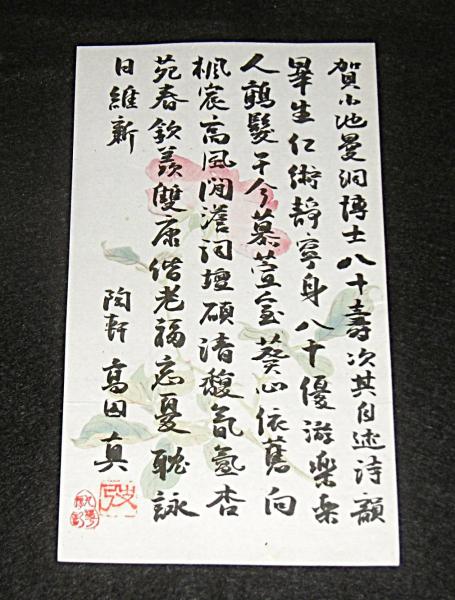 賀小池曼洞博士八十壽次其自述詩韻
畢生仁術靜寧身八十優游樂樂
人鶴髮于今慕萱室葵心依舊向
楓宸高風閒澹詞壇碩清馥氤氳杏
苑春欽羨雙康偕老福忘憂耽詠
日維新
陶軒 高田真